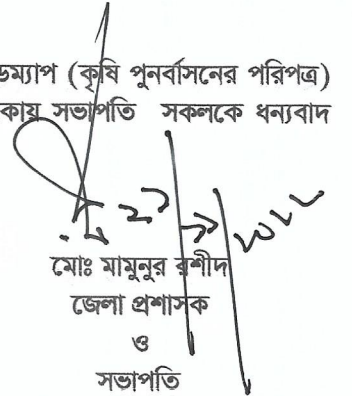 ডম্যাপ (কৃষি পুনর্বাসনের পরিপত্র)
কায় সভাপতি সকলকে ধন্যবাদ
মোঃ মামুনুর রশীদ
জেলা প্রশাসক
ও
সভাপতি